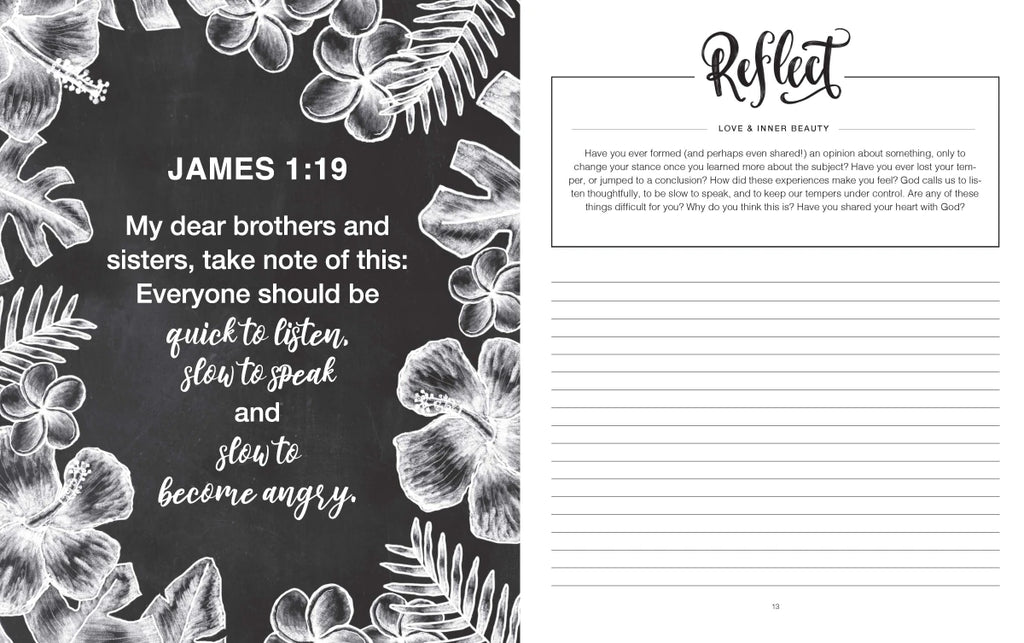 JAMES 1:19
My dear brothers and
sisters, take note of this:
Everyone should be
quick to listen,
slow to speak
and
slow to
become angry.
Reflect
LOVE & INNER BEAUTY
Have you ever formed (and perhaps even shared!) an opinion about something, only to
change your stance once you learned more about the subject? Have you ever lost your tem-
per, or jumped to a conclusion? How did these experiences make you feel? God calls us to lis-
ten thoughtfully, to be slow to speak, and to keep our tempers under control. Are any of these
things difficult for you? Why do you think this is? Have you shared your heart with God?
13